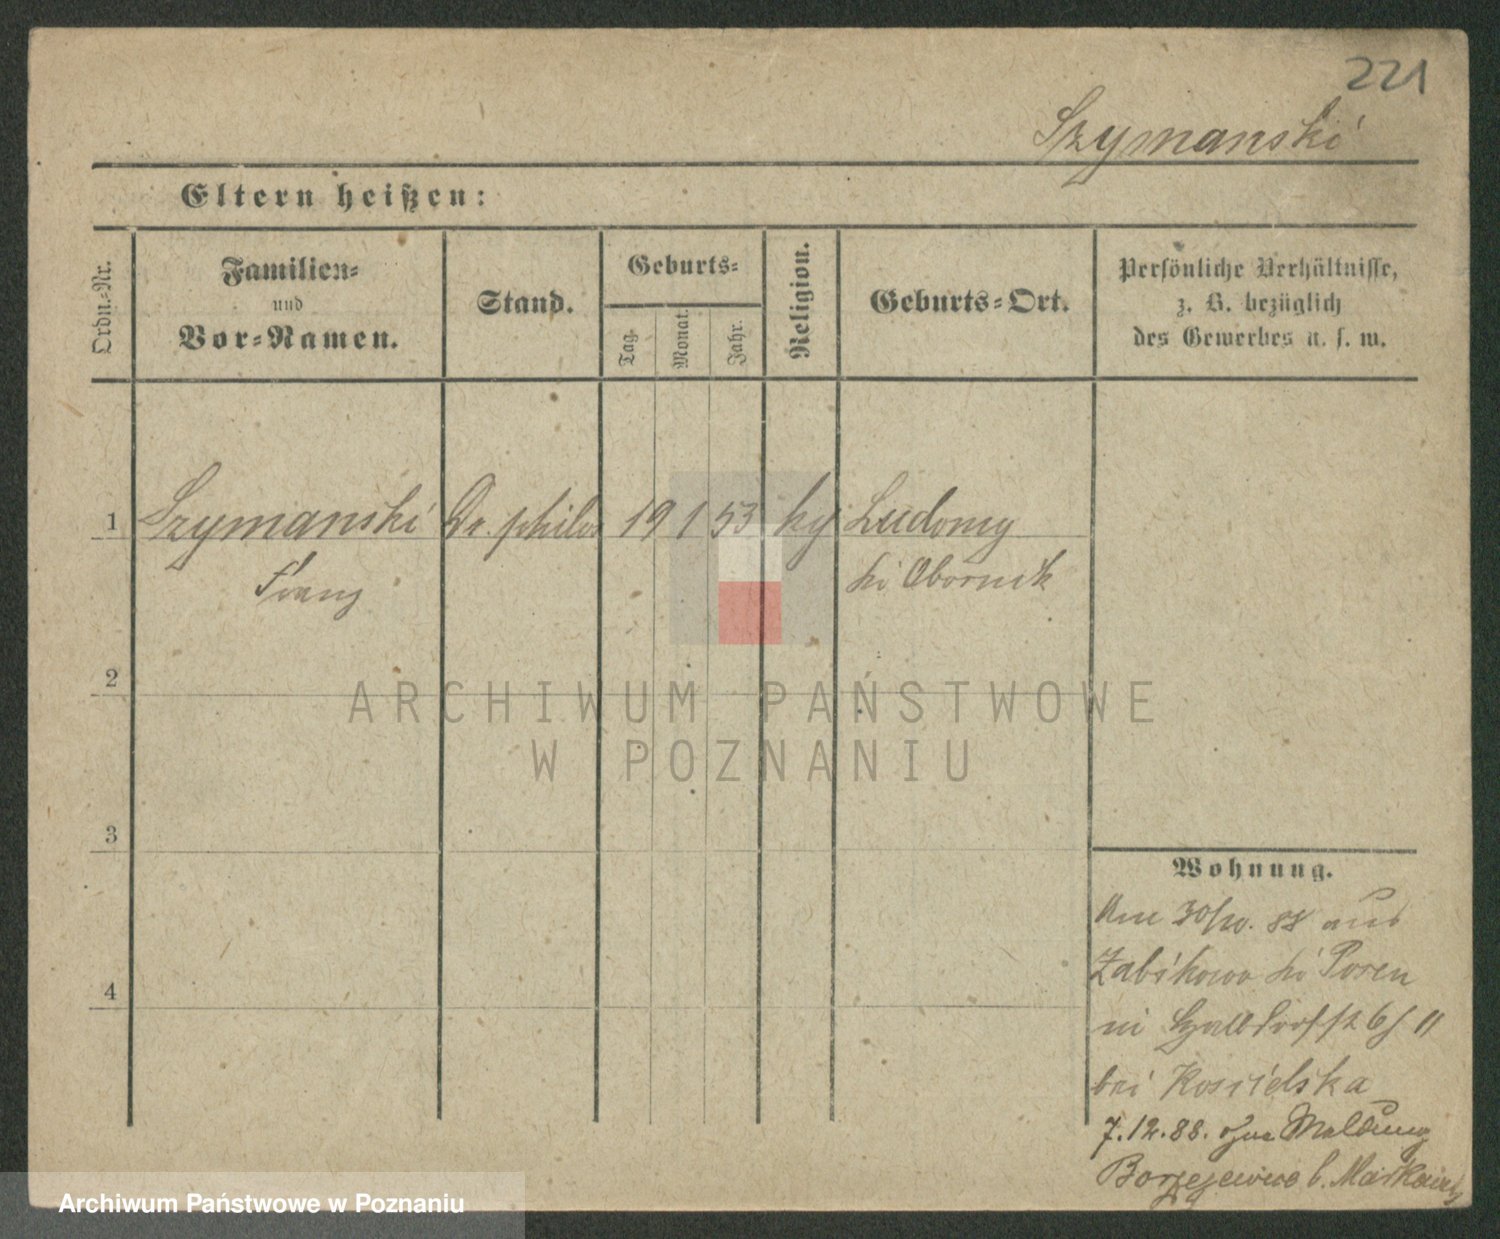 221
Szymanski
Eltern heißen:
Ordn.-Nr.
Familien-
und
Vor-Namen.
Stand.
Geburts-
Tag.
Monat.
Jahr.
Religion.
Geburts-Ort.
Persönliche Verhältnisse,
z. B. bezüglich
des Gewerbes u. s. w.
1 Szymanski Dr. philos 19 1 53 Ludomy
Franz
Obornik
2
3
4
ARCHIWUM PAŃSTWOWE
W POZNANIU
Wohnung.
Am 30/10. 88 aus
Zabikowo Posen
bei Koscielska
7.12.88. ohne Meldung
Archiwum Państwowe w Poznaniu